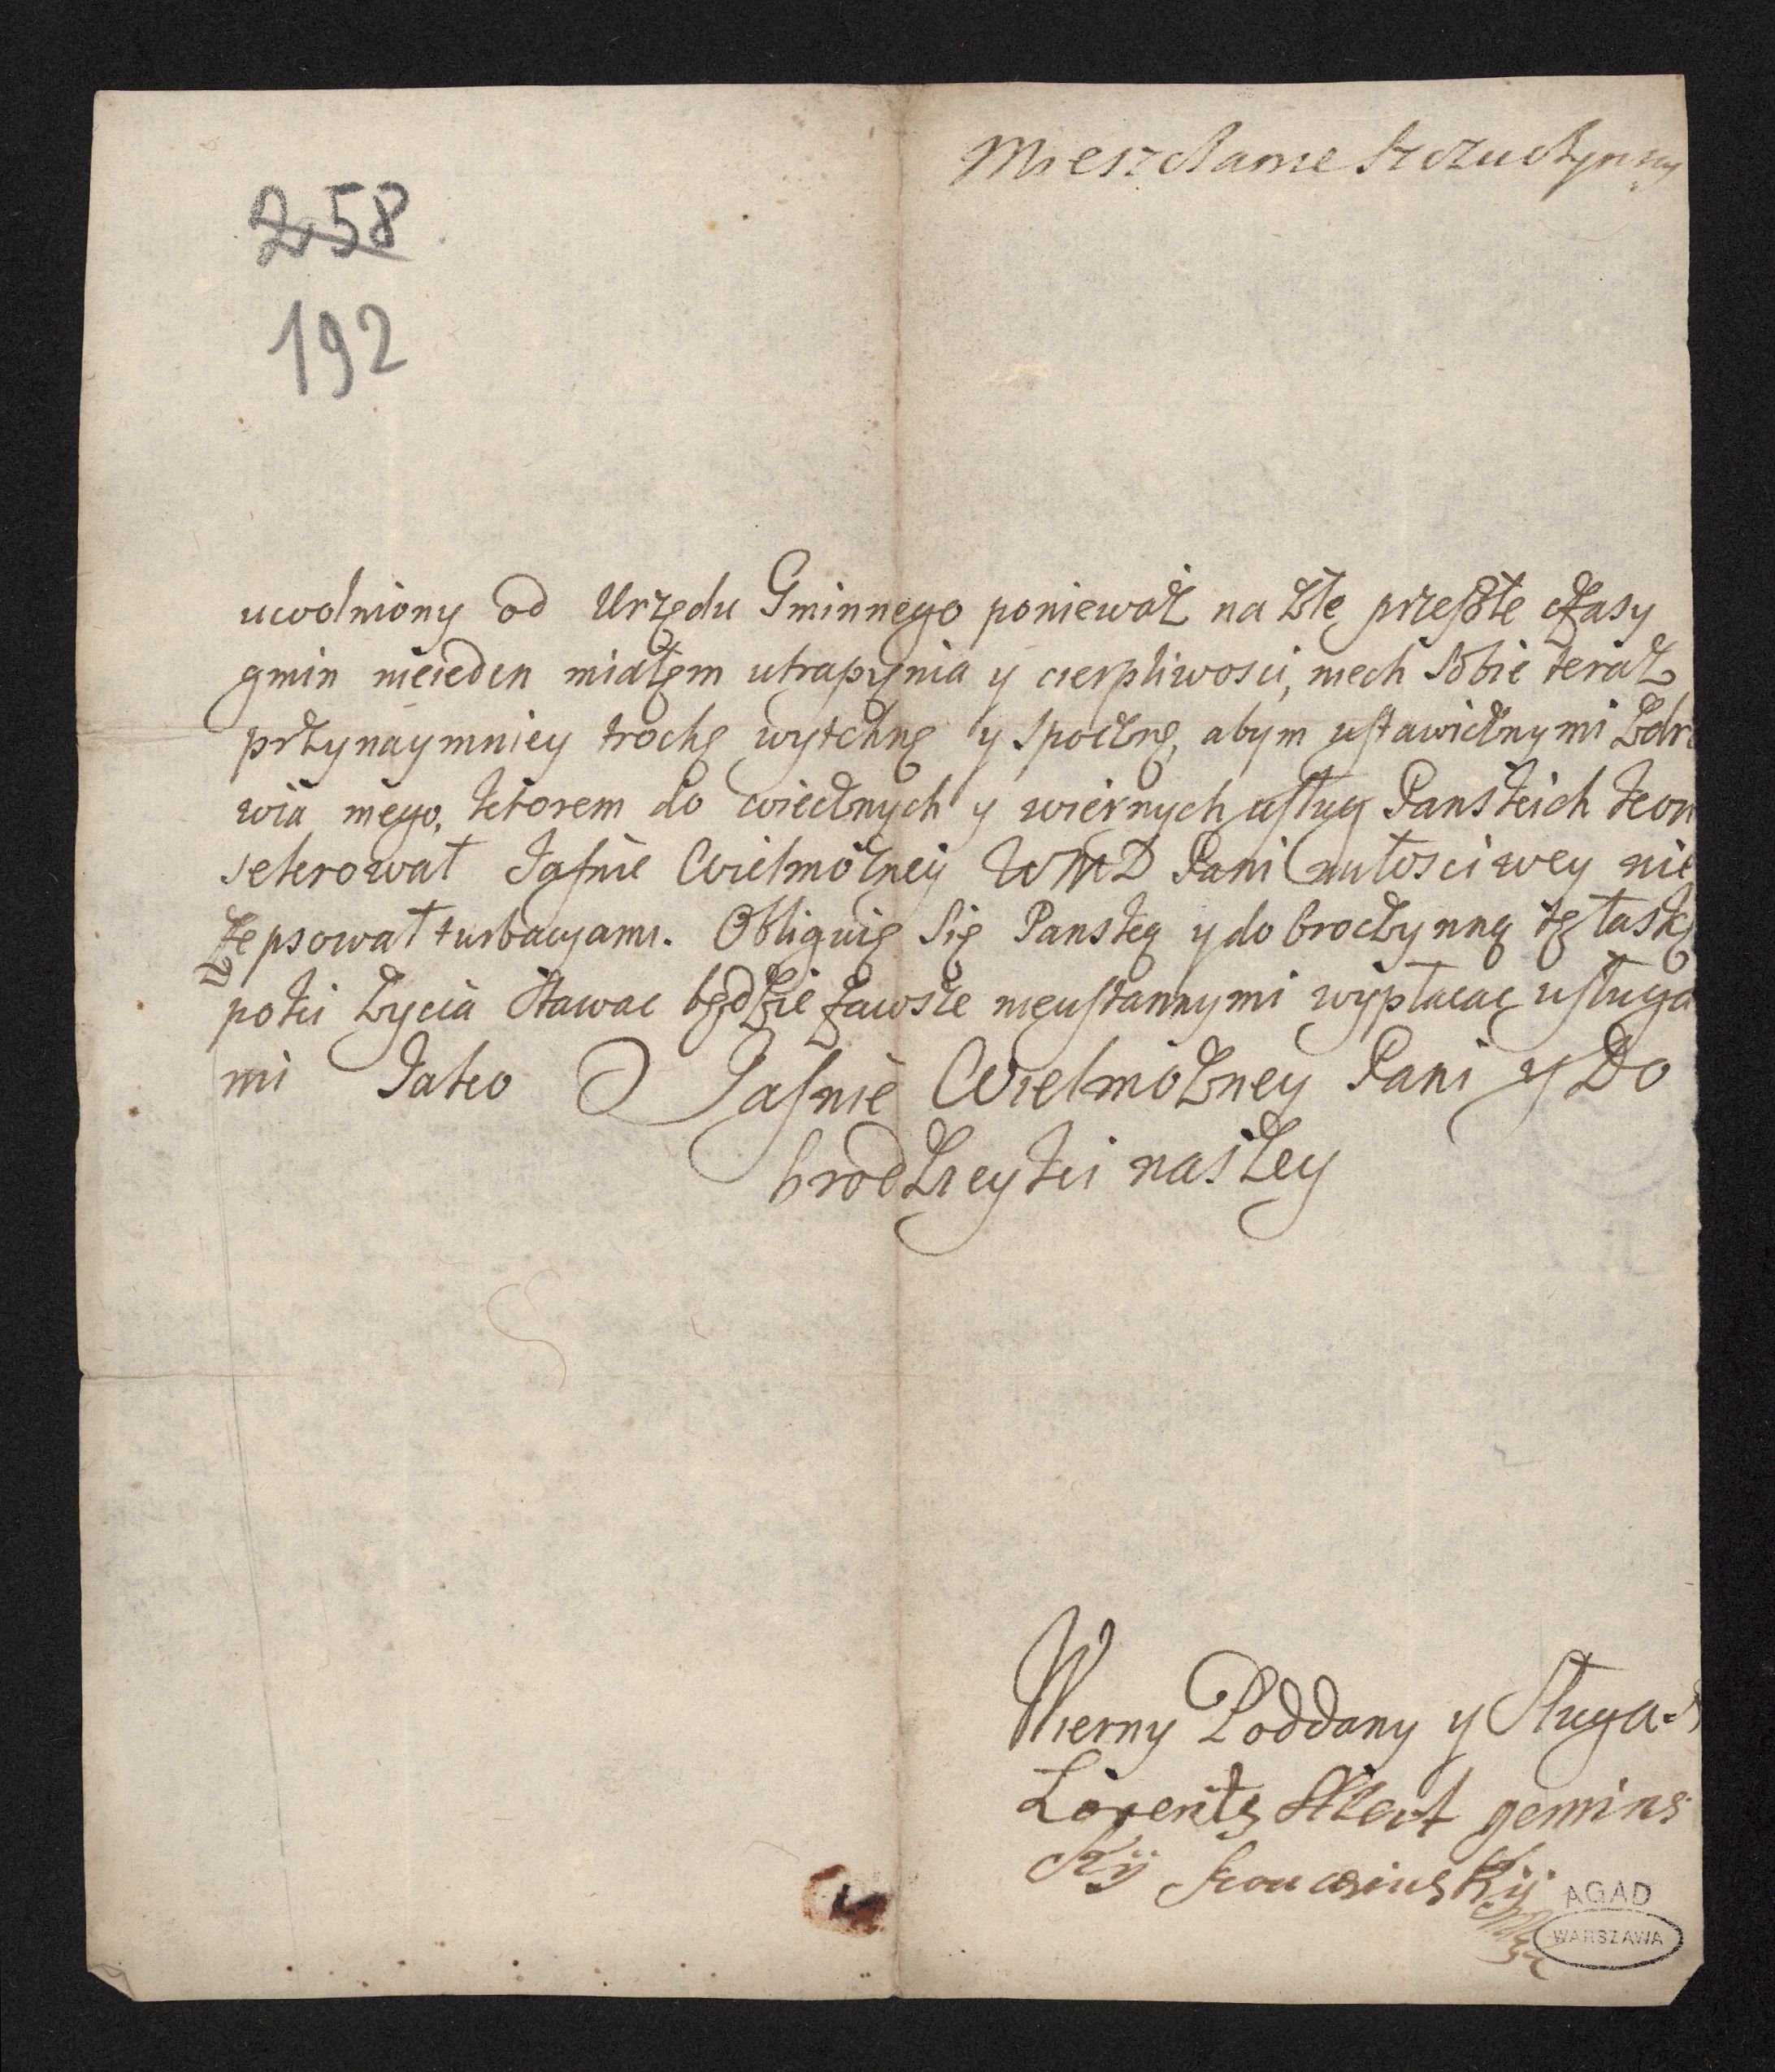 Mieszczanie Szczuczynscy
258
192
uwolniony od Urzędu Gminnego ponieważ na złe przeszłe czasy
gmin nieieden miałem utrapienia y cierpliwosci, niech sobie teraz
przynaymniey trochę wytchnę y spocznę, abym ustawicznymi zdro
wia mego, ktorem do wiecznych y wiernych usług Panskich kon
seterował Jasnie Wielmozney WMD Pani miłosciwey nie
zepsował turbacyami. Obliguię się Panską y dobroczynną tę łaskę
poki zycia stawac będzie zawsze nieustannymi wypłacac usługa
mi Jako Jasnie Wielmozney Pani y Do
brodzieyki naszey
Wierny Poddany y Sługa
Lorentz
AGAD
WARSZAWA